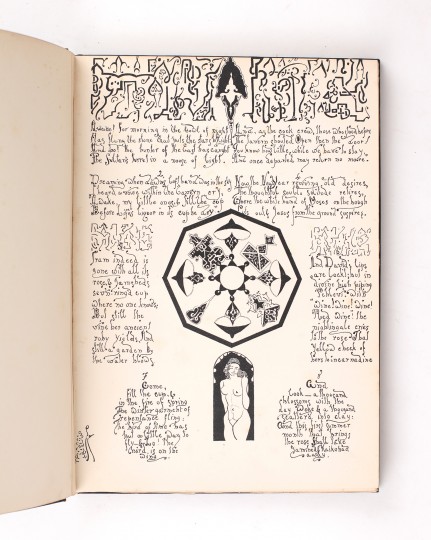 Awake! for morning in the bowl of night
Has flung the stone that puts the stars to flight
And lo! the hunter of the east has caught
The Sultan's turret in a noose of light.
And, as the cock crew, those who stood before
the tavern shouted Open then the door!
You know how little while we have to stay
And once departed may return no more.
Dreaming when dawn's left hand was in the sky
I heard a voice within the tavern cry
Awake, my little ones, & fill the cup
Before life's liquor in its cup be dry
Now the New Year reviving old desires,
The thoughtful soul to solitude retires,
Where the white hand of Moses on the bough
Puts out & Jesus from the ground suspires.
Iram indeed is
gone with all its
rose, & Jamshyd's
sev'n ring'd cup
where no one knows;
But still the
vine her ancient
ruby yields, And
still a garden by
the water blows
And David's lips
are lock't but in
divine high piping
Pehlevi, with
Wine! Wine! Wine!
Red Wine! the
nightingale cries
to the rose That
yellow cheek of
hers to incarnadine
7
Come,
fill the cup, &
in the fire of spring
The winter garment of
repentance fling
The bird of time has
but a little way to
fly & Lo! The
bird is on the
wing
8
And
Look a thousand
blossoms with the
day Woke & a thousand
scattered into clay:
And this first summer
month that brings
the rose Shall take
Jamshyd & Kaikobad
away.